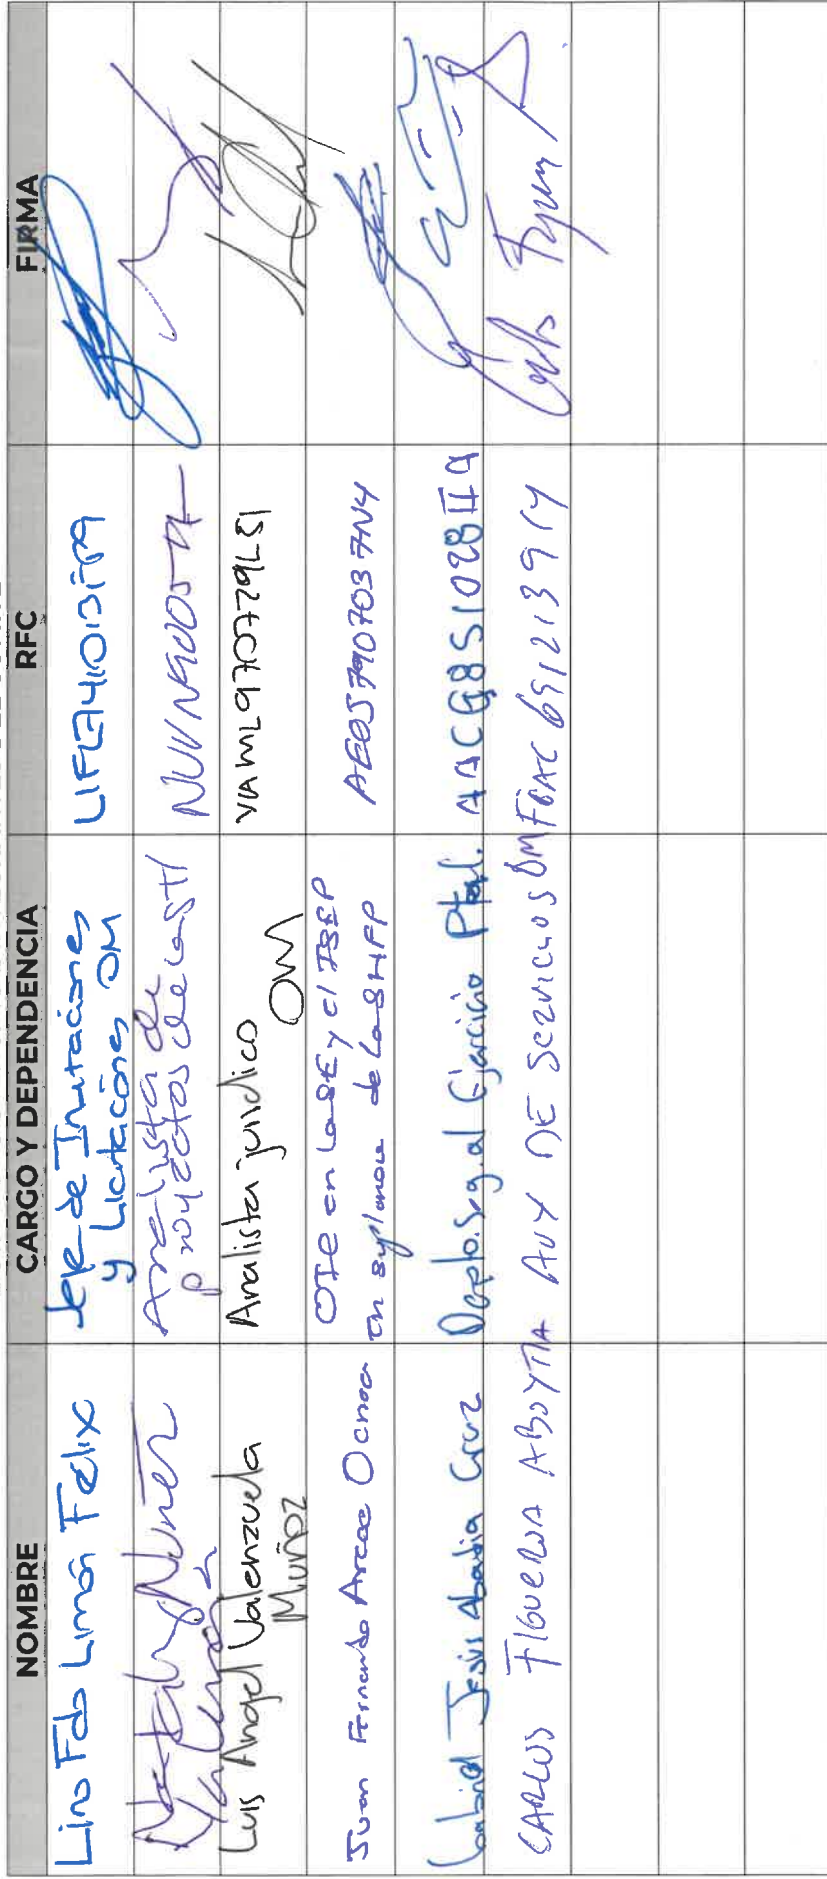 NOMBRE CARGO Y DEPENDENCIA RFC FIRMA
Lino Fdo Limón Félix
Jefe de Invitaciones
y Licitaciones OM
Nataly Núñez
Valenzuela
Analista de
proyectos de la
Luis Angel Valenzuela
Muñoz
Analista jurídico
OM
VAML970729LS1
Juan Fernando Arcee Ochoa
OIC en la SE y el ISEP
en suplencia de la SHFP
AEOJ7907037N4
Gabriel Jesús Abadia Cruz
Depto. Seg. al Ejercicio Ptal.
AACG851028IIA
CARLOS FIGUEROA ABOYTIA
AUX DE SERVICIOS OM
FOAC691213914
Carlos Figueroa